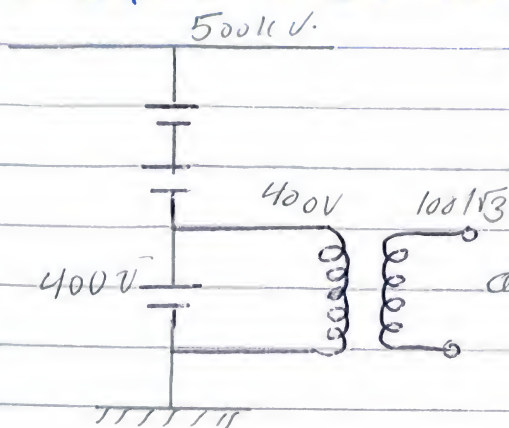 500kV.
400V 100/√3
400V